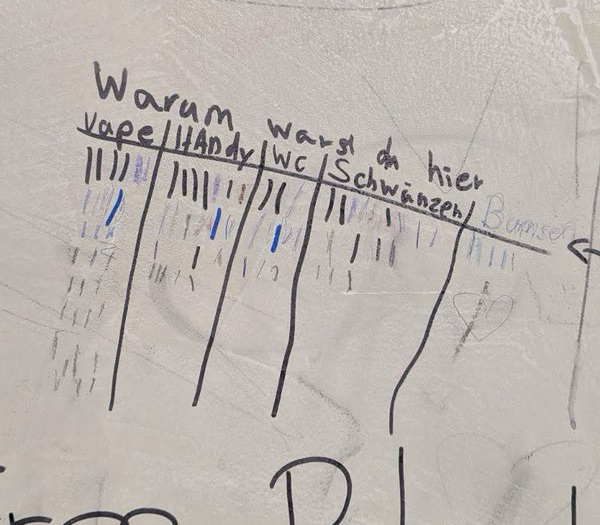 Warum warst du hier
Vape HAndy WC Schwänzen Bumsen